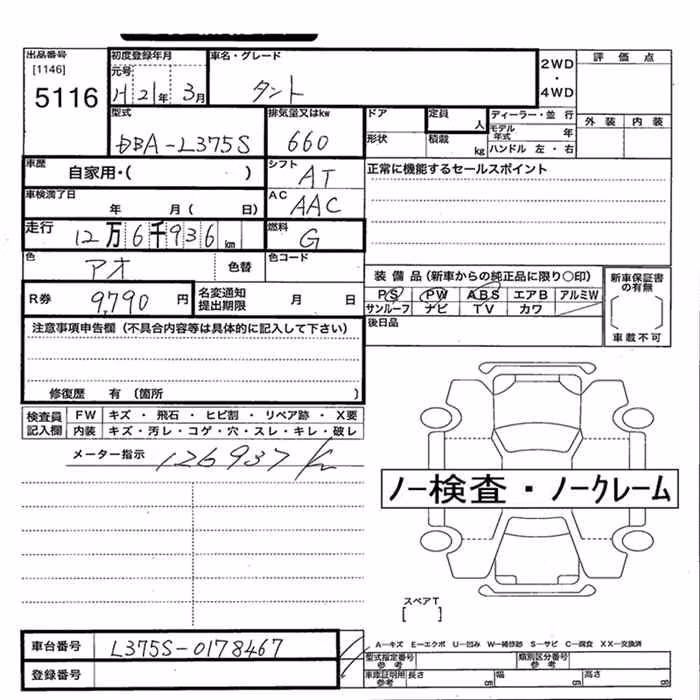 出品番号
[1146]
5116
初度登録年月
元号
H 21年 3月
車名・グレード
タント
2WD
・
4WD
評価点
外装 内装
型式
DBA-L375S
排気量又はkw
660
ドア
形状
定員
人
積載
kg
ディーラー・並行
モデル年式 年
ハンドル 左・右
車歴
自家用・( )
シフト
AT
正常に機能するセールスポイント
車検満了日
年 月( 日)
AC
AAC
走行
12万6千936km
燃料
G
色
アオ
色替
色コード
R券 9,790円
名変通知
提出期限
月 日
装備品(新車からの純正品に限り○印)
PS PW ABS エアB アルミW
サンルーフ ナビ TV カワ
後日品
新車保証書
の有無
車載不可
注意事項申告欄(不具合内容等は具体的に記入して下さい)
修復歴 有(箇所 )
検査員
記入欄
FW キズ・飛石・ヒビ割・リペア跡・X要
内装 キズ・汚レ・コゲ・穴・スレ・キレ・破レ
メーター指示 126937km
ノー検査・ノークレーム
スペアT
[ ]
車台番号 L375S-0178467
登録番号
A―キズ E―エクボ U―凹み W―補修跡 S―サビ C―腐食 XX―交換済
型式指定番号
参考
類別区分番号
参考
車庫証明用
参考
長さ 幅 高さ